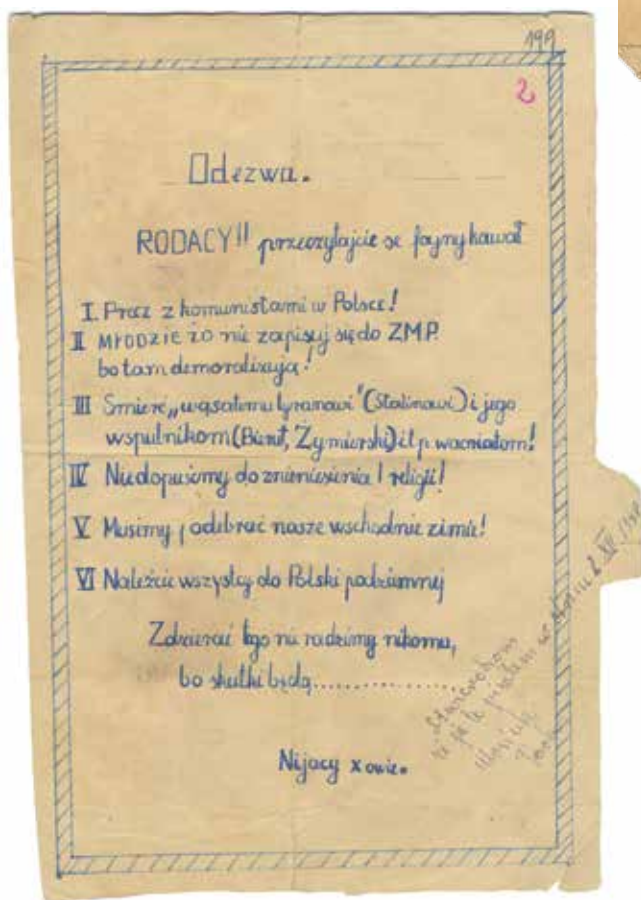 199
2
Odezwa.
RODACY!! przeczytajcie se fajny kawał
I. Precz z komunistami w Polsce!
II MŁODZIEŻO nie zapisuj się do ZMP.
bo tam demoralizują!
III Smierć „wąsatemu tyranowi” (Stalinowi) i jego
wspulnikom (Bierut, Zymierski) i t p. wacniatom!
IV Niedopuśmy do zniniesienia religii!
V Musimy odebrać nasze wschodnie zimie!
VI Należcie wszyscy do Polski podziemnej
Zdzierać tego nie radzimy nikomu,
bo skutki będą....................
Nijacy x owie.
Stwierdzam
że ja to pisałem w dniu 2 XII